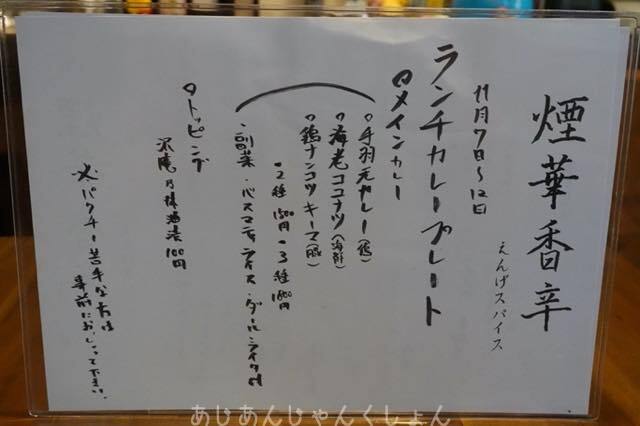 煙華香辛
えんげスパイス
11月7日〜12日
ランチカレープレート
ロメインカレー
○手羽元カレー(鶏)
○海老ココナツ(海鮮)
○鶏ナンコツキーマ(豚)
・2種1500円・3種1800円
・副菜・バスマティライス・ダール・ライタ付
ロトッピング
沢庵乃椿油漬100円
※パクチー苦手な方は
事前におっしゃって下さい。
あじあんじゃんくしょん